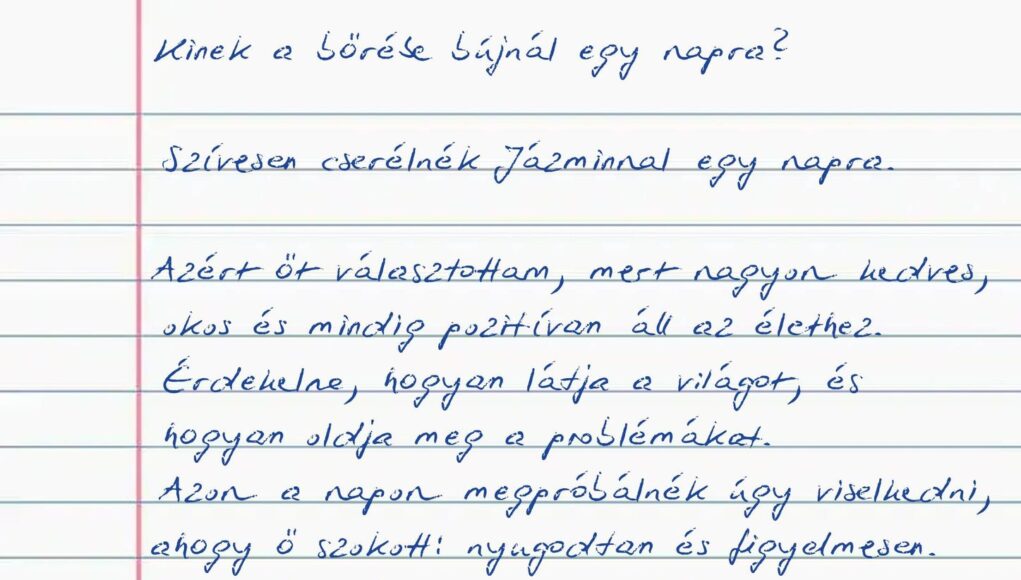 Kinek a bőrébe bújnál egy napra?
Szívesen cserélnék Jázminnal egy napra.
Azért őt választottam, mert nagyon kedves,
okos és mindig pozitívan áll az élethez.
Érdekelne, hogyan látja a világot, és
hogyan oldja meg a problémákat.
Azon a napon megpróbálnék úgy viselkedni,
ahogy ő szokott: nyugodtan és figyelmesen.